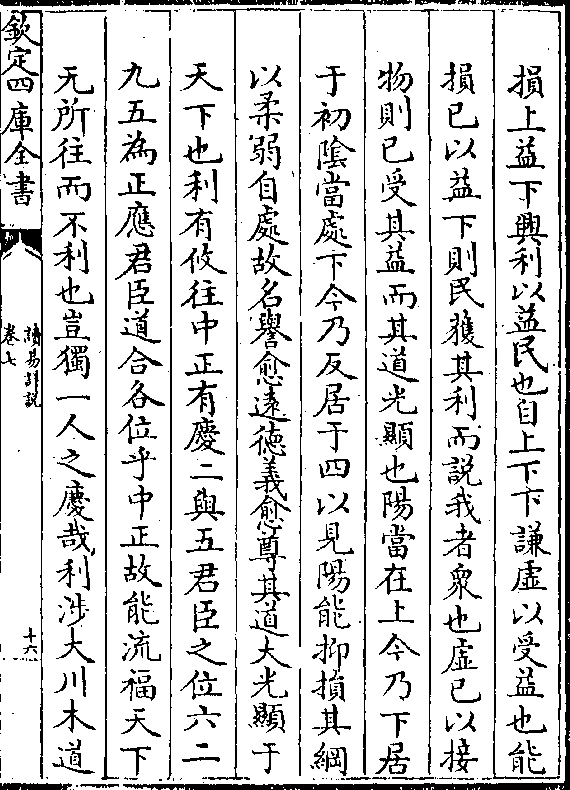 損上益下興利以益民也自上下下謙虚以受益也能
損已以益下則民獲其利而説我者衆也虚已以接
物則已受其益而其道光顯也陽當在上今乃下居
于初隂當處下今乃反居于四以見陽能抑損其綱
以柔弱自處故名譽愈遠徳義愈尊其道大光顯于
天下也利有攸往中正有慶二與五君臣之位六二
九五為正應君臣道合各位乎中正故能流福天下
无所往而不利也豈獨一人之慶哉利涉大川木道
欽定四庫全書
讀易詳說
卷七
十六